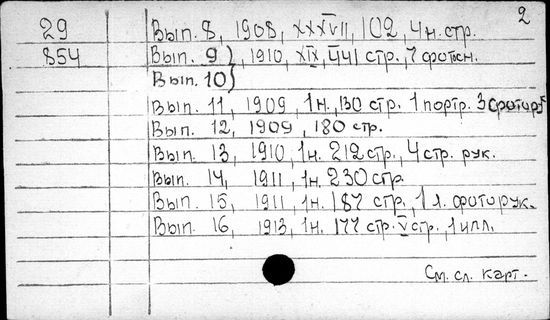 2
29 Вып. 8, 1908, XXXVII, 102, 4 н. стр.
854 Вып. 9}, 1910, XIX, 441 стр., 7 фотсн.
Вып. 10}
Вып. 11, 1909, 1н., 130 стр. 1 портр. 3
Вып. 12, 1909, 180 стр.
Вып. 13, 1910, 1н. 212 стр., 4 стр. рук.
Вып. 14, 1911, 1н. 230 стр.
Вып. 15, 1911, 1н. 187 стр., 1 л. фоторук.
Вып. 16, 1913, 1н. 177 стр. V стр., 1 илл.
См. сл. карт.